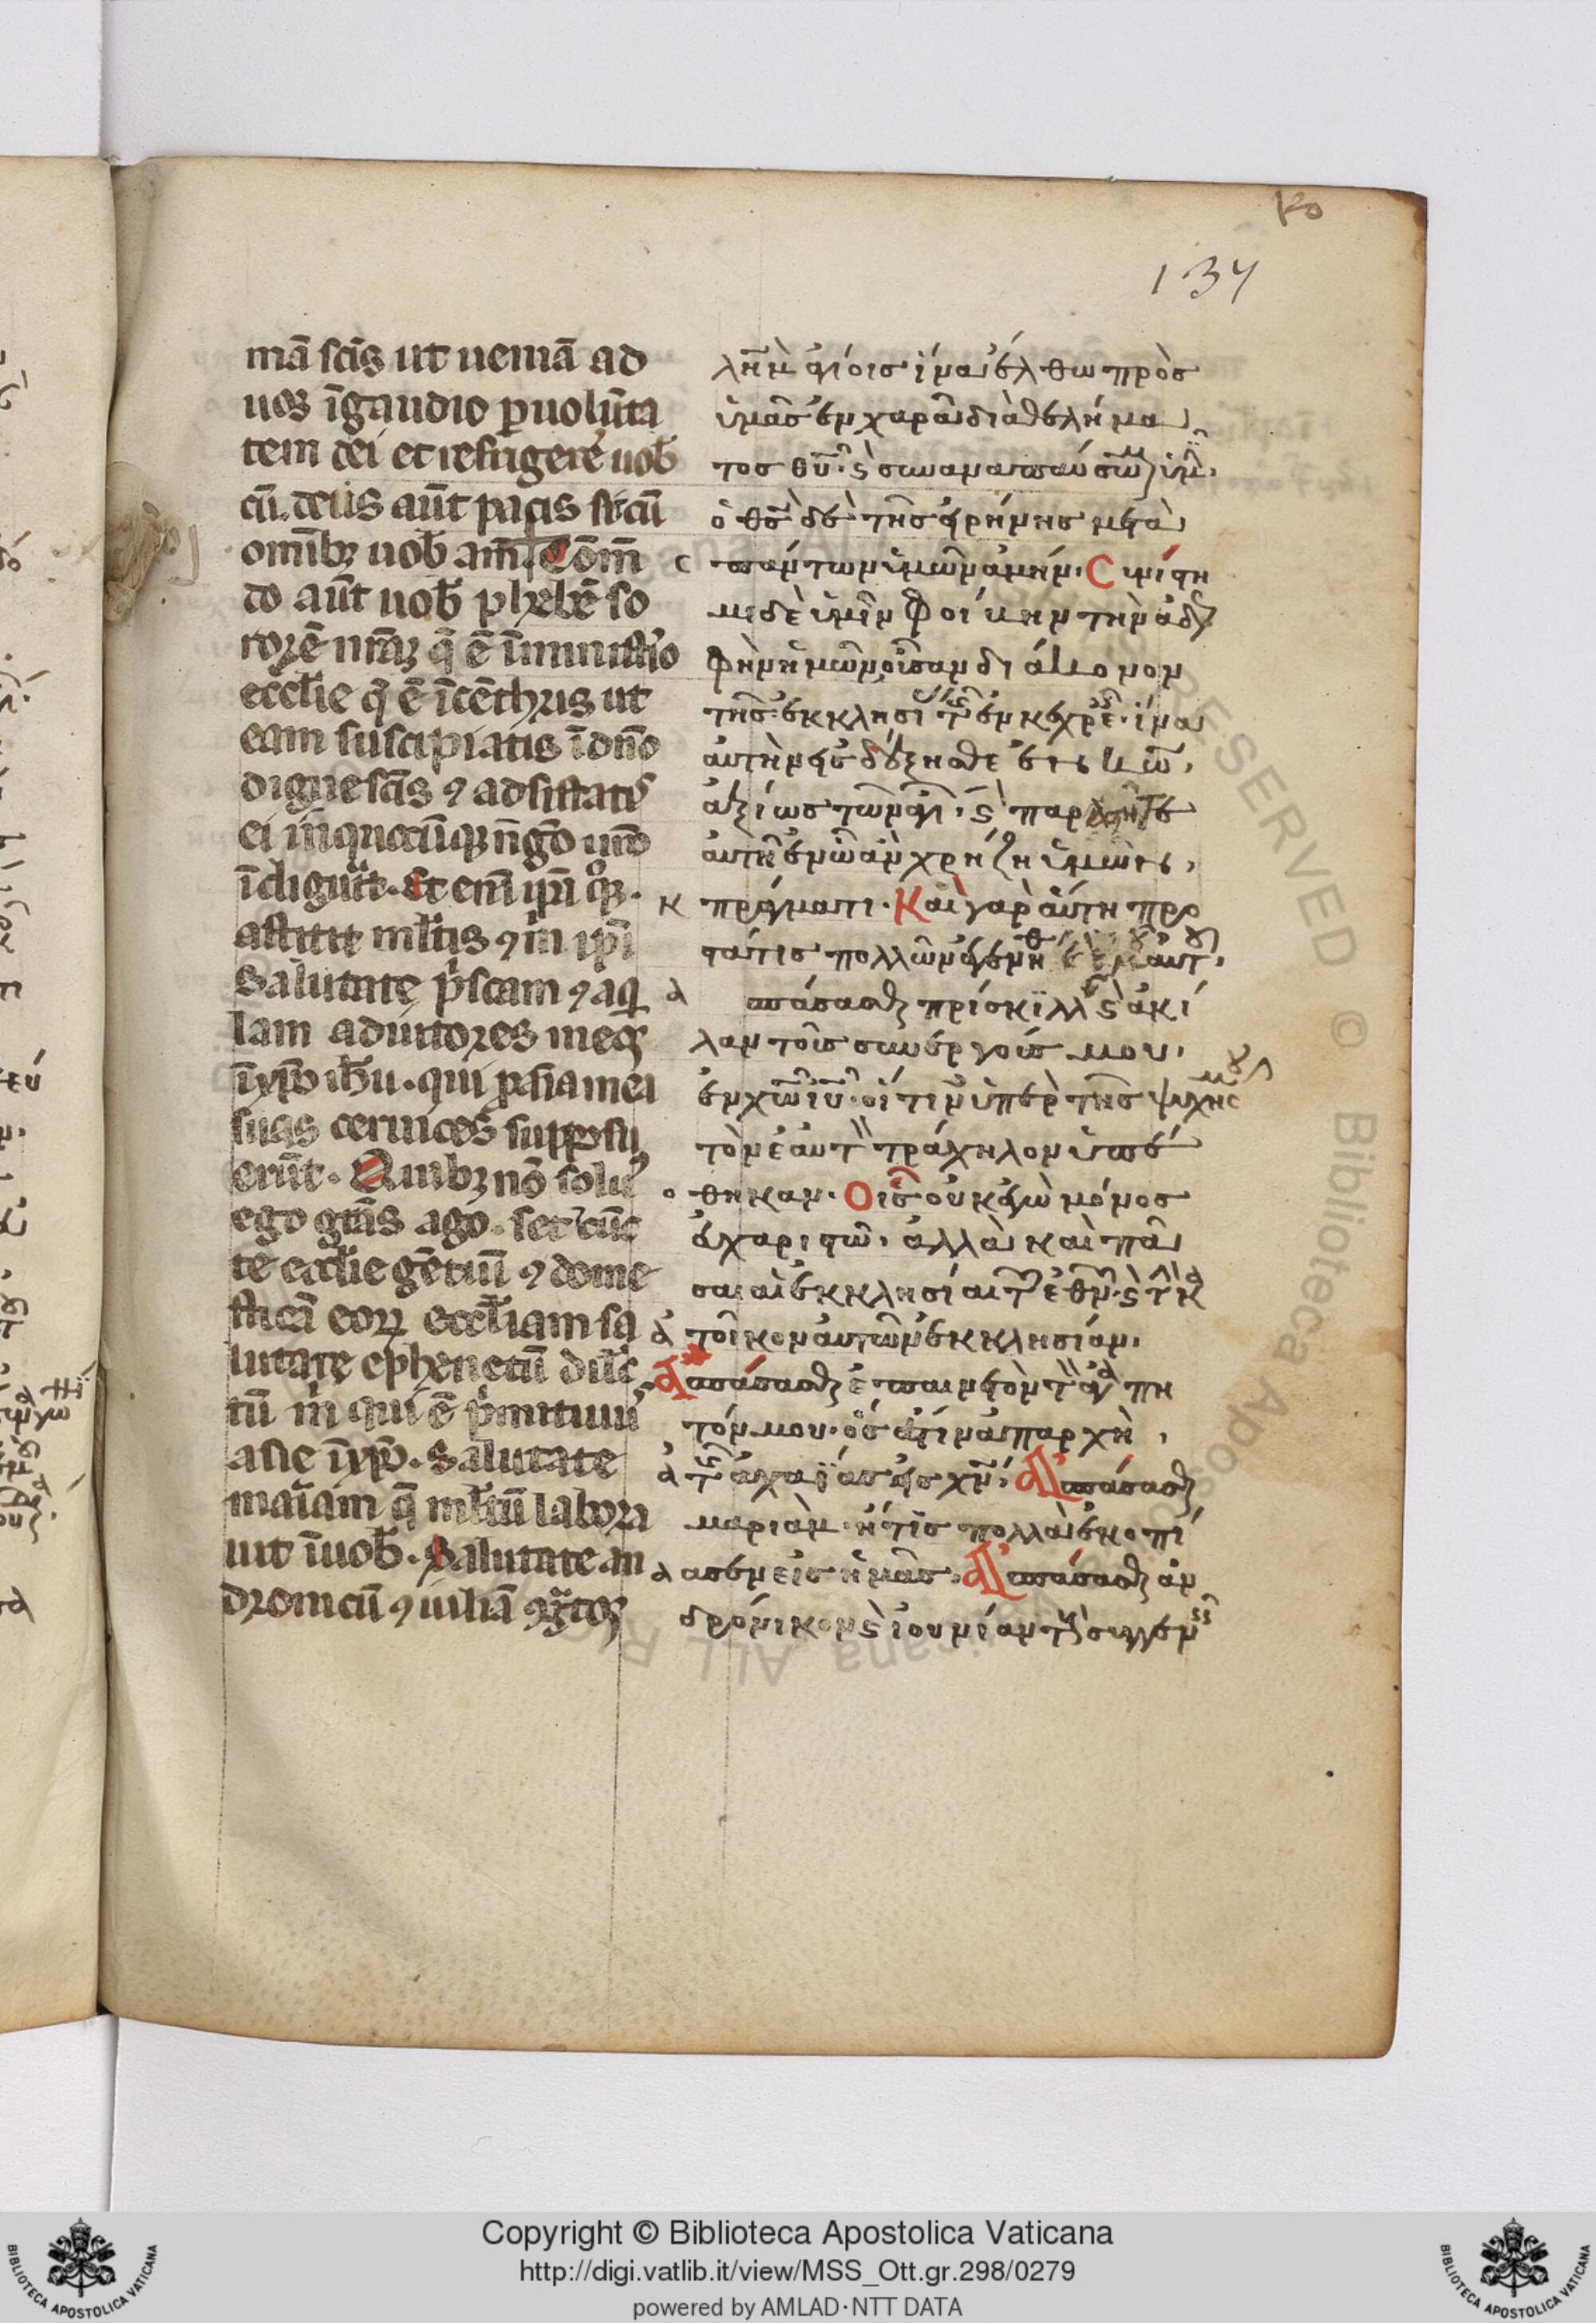 134
mā scīs ut ueniā ad
uos īgaudio puolūta
tem dei et refrigerē uob
cū. deus aūt pacis sit cū
omībꝫ uob am̄. Com̄
do aūt uob phebē so
rorē nr̄aꝫ q̄ ē īministio
eccl̄ie q̄ ē īcēchris ut
eam suscipiatis ī dn̄o
digne scīs ⁊ adsistatis
ei īquocūqꝫ
īdiguīt. et enī ipā qꝫ.
astitit ml̄tis ⁊ m ipī
Salutate p̄scam ⁊ aq
lam adiutores meos
īxp̄o ih̄u. qui p aīa mea
suas ceruices supposu
erūt. Quibꝫ nō solū
ego gr̄as ago. set cūc
te eccl̄ie gētiū ⁊ dome
sticā eoꝝ eccl̄iam sa
lutate ephenetū dilc̄
tū m qui ē p̄mitiuus
asie īxp̄o. Salutate
mariam q̄ ml̄tū labora
uit īuob. Salutate an
dronicū ⁊ iuliā
λημ ἁγίοις ἵνα ἔλθω πρὸς
ὑμᾶς ἐν χαρᾶ διὰ θελήμα
τος θυ. ϛ συναναπαύσωμαι ὑμῖν.
ὁ θς δὲ τῆς εἰρήνης μετὰ
c πάντων ὑμῶν ἀμήν. Cυνίστη
μι δὲ ὑμῖν Φοίβην τὴν ἀδελ
φὴν ἡμῶν οὖσαν διάκονον
τῆς ἐκκλησί τῆς ἐν κεγχρε. ἵνα
αὐτὴν προσδέξησθε ἐν κω.
ἀξίως τῶν ἁγί. ϛ παραστῆτε
αὐτῆ ἐν ὧ ἂν χρήζη ὑμῶν
κ πράγματι. Καὶ γὰρ αὕτη προ
στάτις πολλῶν ἐγενήθ
α ἀσπάσασθε πρίσκιλλ ϛ ἀκύ
λαν τοὺς συνεργούς μου.
ἐν χω ιυ. οἵτινες ὑπὲρ τῆς ψυχῆς μου
τὸν ἑαυτ τράχηλον ὑπέ
ο θηκαν. Οἷς οὐκ ἐγὼ μόνος
εὐχαριστῶ. ἀλλὰ καὶ πᾶ
σαι αἱ ἐκκλησίαι τ ἐθν. ϛ τ κ
α τοἶκον αὐτῶν ἐκκλησίαν.
Ἀσπάσασθε ἐπαινετὸν τ ἀγαπη
τόν μου. ὅς ἐστιν ἀπαρχὴ,
α τῆς ἀχαΐας εἰς χν. Ἀσπάσασθε
μαριὰμ. ἥτις πολλὰ ἐκοπί
α ασεν εἰς ἡμᾶς. Ἀσπάσασθε ἀν
δρόνικον ϛ ἰουνίαν τ συγγεν
Copyright © Biblioteca Apostolica Vaticana
http://digi.vatlib.it/view/MSS_Ott.gr.298/0279
powered by AMLAD·NTT DATA